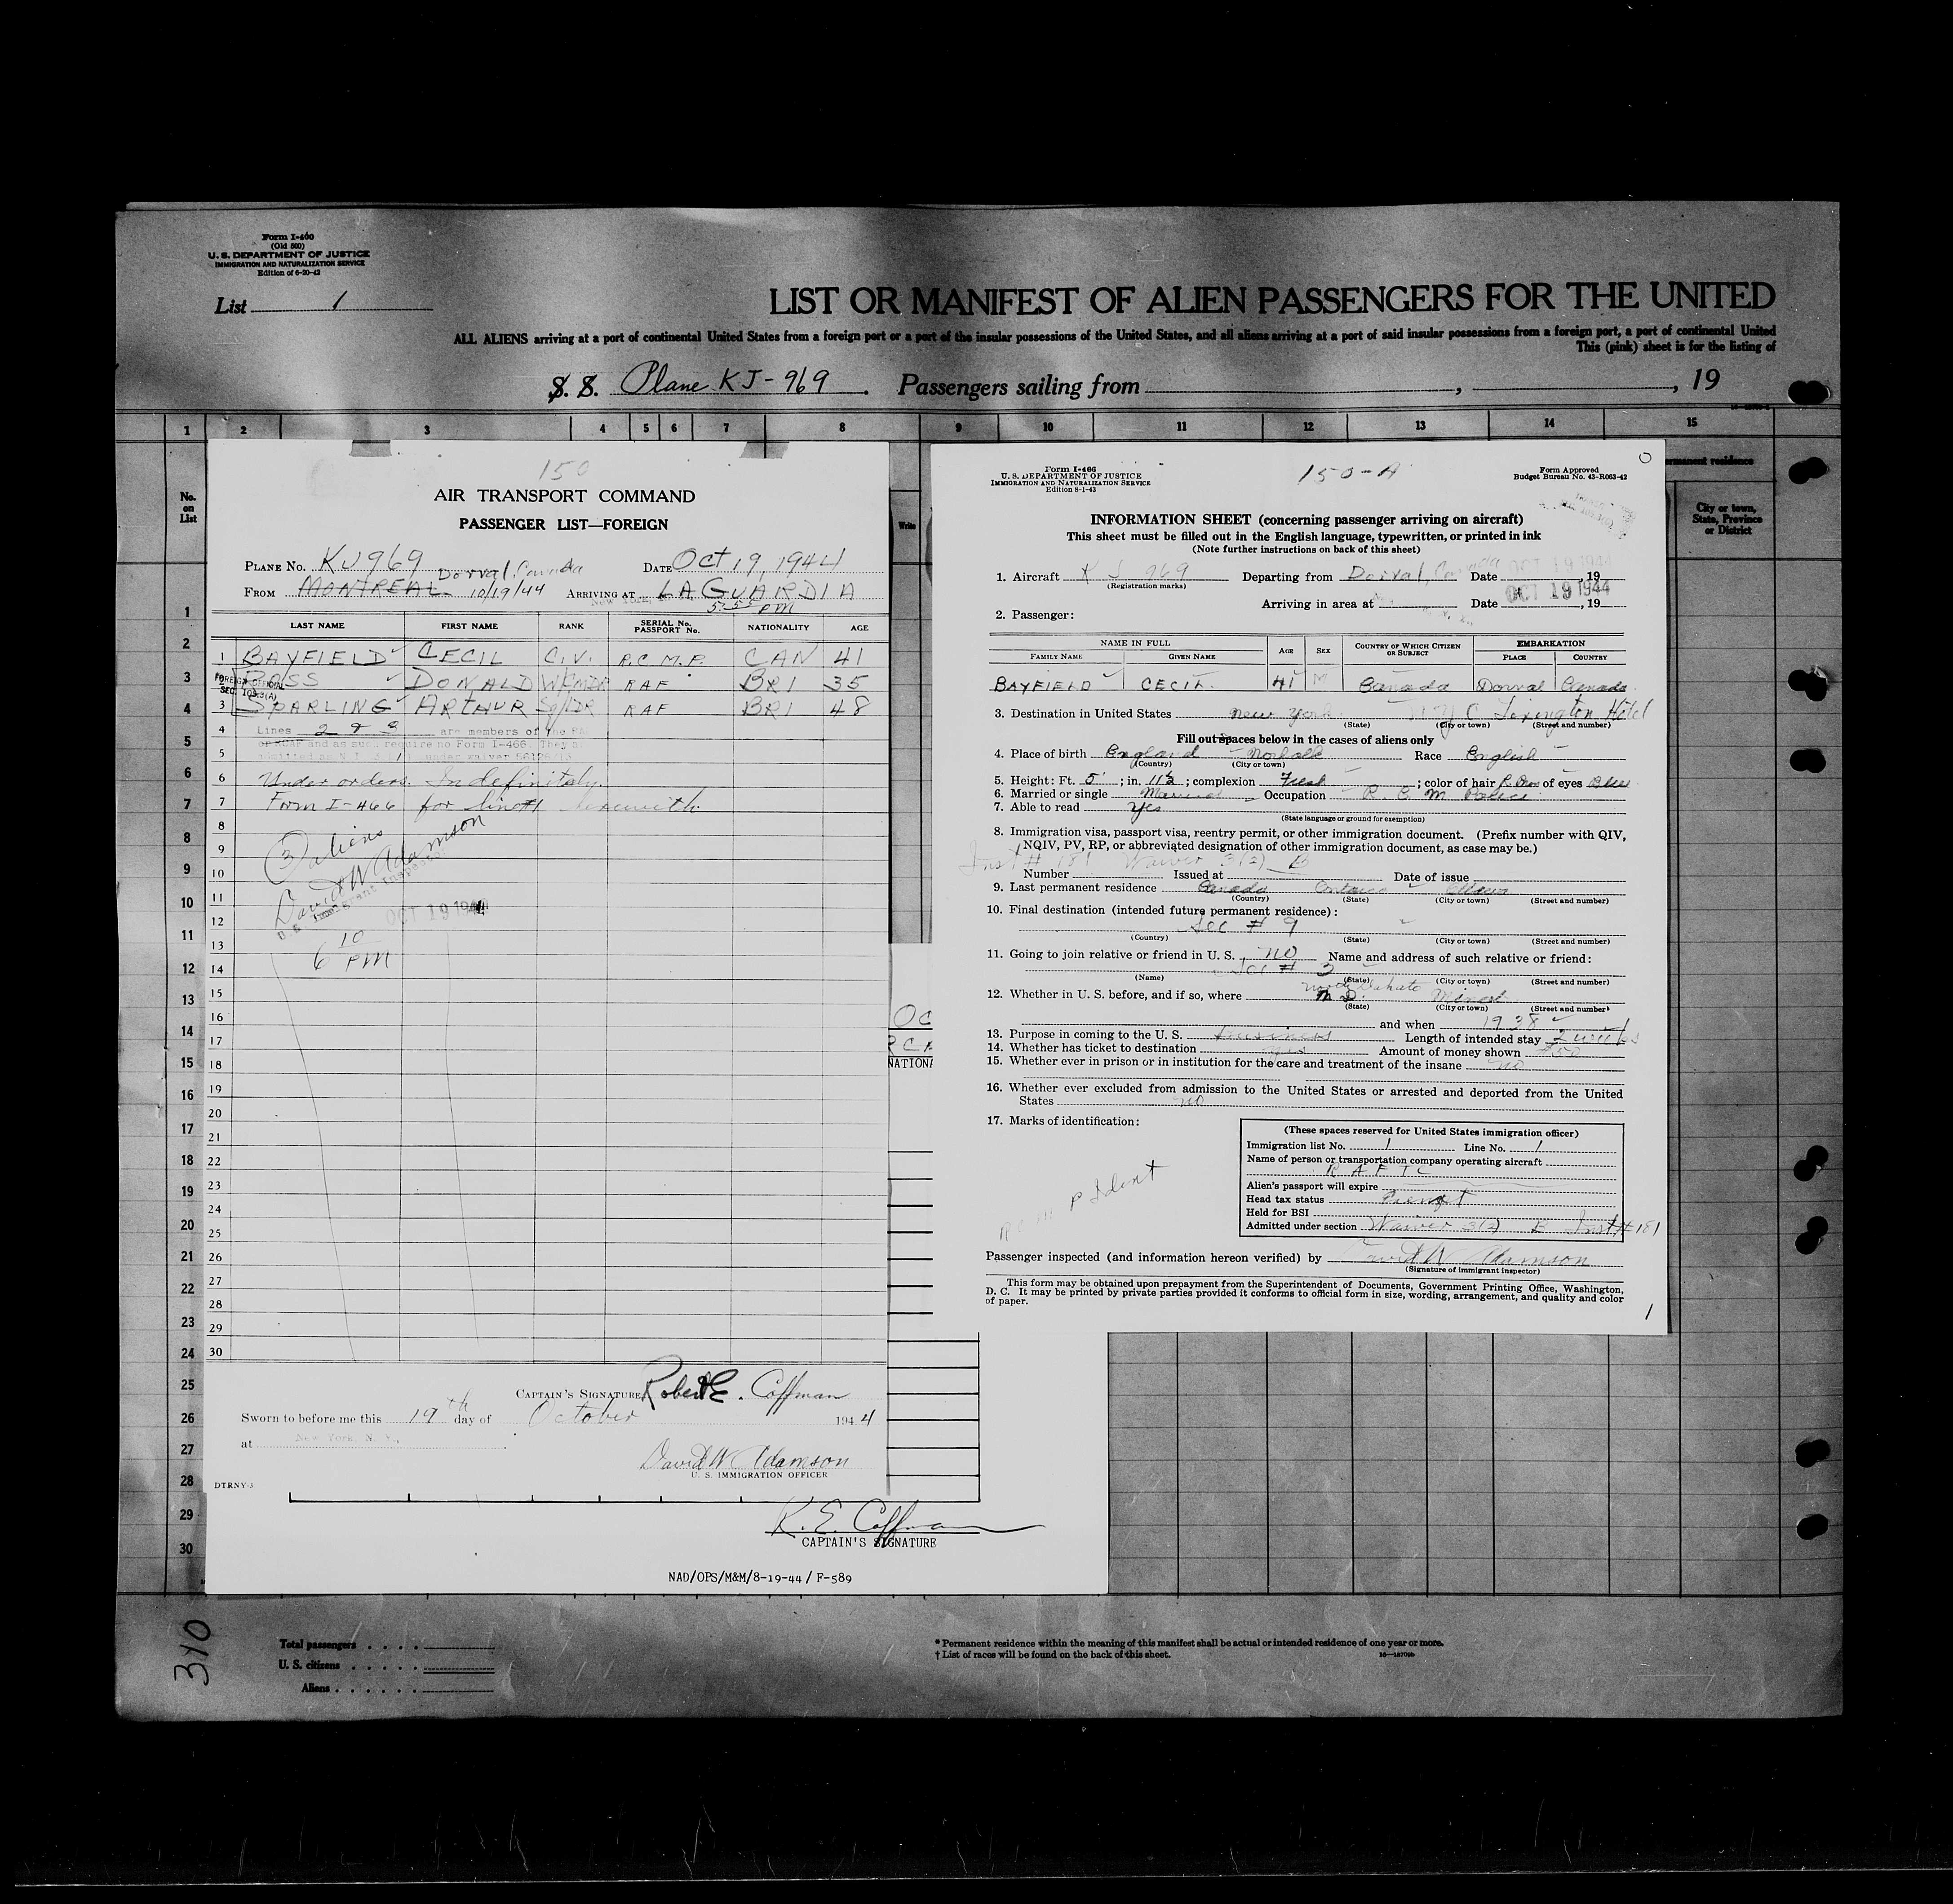 Form I-466
(Old 500)
U. S. DEPARTMENT OF JUSTICE
IMMIGRATION AND NATURALIZATION SERVICE
Edition of 6-20-42
List 1
LIST OR MANIFEST OF ALIEN PASSENGERS FOR THE UNITED
ALL ALIENS arriving at a port of continental United States from a foreign port or a port of the insular possessions of the United States, and all aliens arriving at a port of said insular possessions from a foreign port, a port of continental United
This (pink) sheet is for the listing of
S. S. Plane KJ-969. Passengers sailing from , , 19
1 2 3 4 5 6 7 8 9 10 11 12 13 14 15
No. on List
Write
permanent residence
City or town, State, Province or District
1
2
3
4
5
6
7
8
9
10
11
12
13
14
15
16
17
18
19
20
21
22
23
24
25
26
27
28
29
30
150
AIR TRANSPORT COMMAND
PASSENGER LIST—FOREIGN
PLANE NO. KJ969 Dorval, Canada DATE Oct 19, 1944
FROM MONTREAL 10/19/44 ARRIVING AT LA GUARDIA
5:55 PM
LAST NAME FIRST NAME RANK SERIAL No. PASSPORT No. NATIONALITY AGE
1 BAYFIELD CECIL CIV. R.C.M.P. CAN 41
2 ROSS DONALD W/CMDR RAF BRI 35
FOREIGN OFFICIAL
3 SPARLING ARTHUR Sq/LDR RAF BRI 48
4 Lines 2 & 3 are members of the
5 or RCAF and as such require no Form I-466. They
6 Under orders. Indefinitely.
7 Form I-466 for line #1 herewith
8
9
10
11
12
13
14
15
16
17
18
19
20
21
22
23
24
25
26
27
28
29
30
(3) aliens
David W Adamson
U. S. Immigrant Inspector
OCT 19 1944
6 10 PM
CAPTAIN'S SIGNATURE Robert E. Coffman
Sworn to before me this 19th day of October 1944
at New York, N. Y.,
David W Adamson
U. S. IMMIGRATION OFFICER
DTRNY-J
OC
RCA
NATIONA
R. E. Coffman
CAPTAIN'S SIGNATURE
NAD/OPS/M&M/8-19-44/F-589
Form I-466
U. S. DEPARTMENT OF JUSTICE
IMMIGRATION AND NATURALIZATION SERVICE
Edition 8-1-43
150-A
Form Approved
Budget Bureau No. 43-R063-42
INFORMATION SHEET (concerning passenger arriving on aircraft)
This sheet must be filled out in the English language, typewritten, or printed in ink
(Note further instructions on back of this sheet)
1. Aircraft KJ 969 Departing from Dorval, Canada Date OCT 19 1944, 19
(Registration marks)
Arriving in area at Date OCT 19 1944, 19
2. Passenger:
NAME IN FULL AGE SEX COUNTRY OF WHICH CITIZEN OR SUBJECT EMBARKATION
FAMILY NAME GIVEN NAME PLACE COUNTRY
BAYFIELD CECIL 41 M Canada Dorval Canada
3. Destination in United States New York N Y C Lexington Hotel
(State) (City or town) (Street and number)
Fill out spaces below in the cases of aliens only
4. Place of birth England Norfolk Race English
(Country) (City or town)
5. Height: Ft. 5'; in. 11½; complexion Fresh; color of hair of eyes Blue
6. Married or single Married Occupation R. C. M. Police
7. Able to read Yes
(State language or ground for exemption)
8. Immigration visa, passport visa, reentry permit, or other immigration document. (Prefix number with QIV,
NQIV, PV, RP, or abbreviated designation of other immigration document, as case may be.)
Inst # 181 Waiver 3(2) B
Number Issued at Date of issue
9. Last permanent residence Canada Ontario Ottawa
(Country) (State) (City or town) (Street and number)
10. Final destination (intended future permanent residence):
See # 9
(Country) (State) (City or town) (Street and number)
11. Going to join relative or friend in U. S. NO Name and address of such relative or friend:
See # 3
(Name) (State) (City or town) (Street and number)
12. Whether in U. S. before, and if so, where N. D. Minot
(State) (City or town) (Street and number)
and when 1938
13. Purpose in coming to the U. S. business Length of intended stay 2 weeks
14. Whether has ticket to destination yes Amount of money shown
15. Whether ever in prison or in institution for the care and treatment of the insane no
16. Whether ever excluded from admission to the United States or arrested and deported from the United
States no
17. Marks of identification:
RCMP Ident
(These spaces reserved for United States immigration officer)
Immigration list No. 1 Line No. 1
Name of person or transportation company operating aircraft
R A F T C
Alien's passport will expire
Head tax status Exempt
Held for BSI
Admitted under section Waiver 3(2) B Inst # 181
Passenger inspected (and information hereon verified) by David W Adamson
(Signature of immigrant inspector)
This form may be obtained upon prepayment from the Superintendent of Documents, Government Printing Office, Washington,
D. C. It may be printed by private parties provided it conforms to official form in size, wording, arrangement, and quality and color
of paper.
1
310
Total passengers
U. S. citizens
Aliens
* Permanent residence within the meaning of this manifest shall be actual or intended residence of one year or more.
† List of races will be found on the back of this sheet.